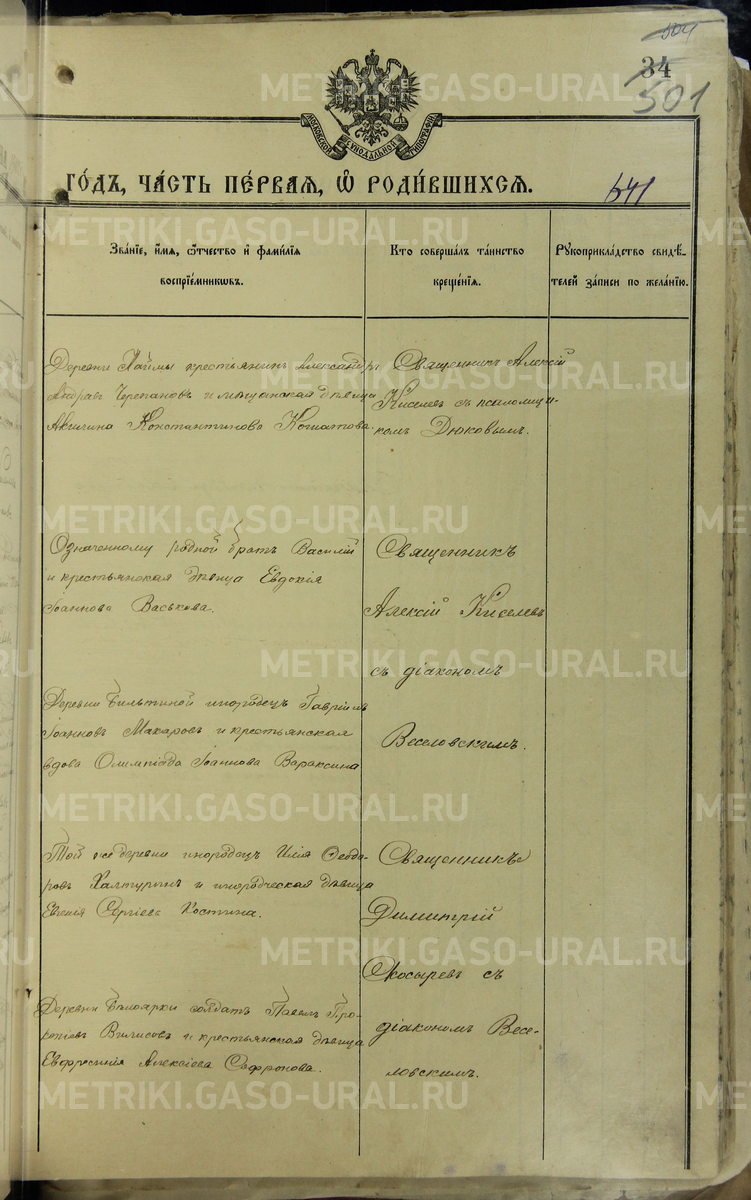 504
34
501
МОСКОВСКОЙ СѴНОДАЛЬНОЙ ТИПОГРАФІИ
ГО́ДЪ, ЧА́СТЬ ПЕ́РВАЯ, Ѡ҆ РОДИ́ВШИХСЯ.
541
Зва́нїе, и҆́мя, ѻ҆́тчество и҆ фами́лїя
воспрїе́мникѡвъ.
Кто соверша́лъ та́инство
креще́нїя.
Рꙋкоприкла́дство свидѣ́-
телей за́писи по жела́нїю.
Деревни крестьянинъ Александръ
Черепановъ и мещанская дѣвица
Акилина Константинова
Священникъ Алексій
Киселевъ съ псаломщи-
комъ Дюковымъ.
Означенному родной братъ Василій
и крестьянская дѣвица Евдокія
Іоаннова Васькова.
Священникъ
Алексій Киселевъ
съ діакономъ
Веселовскимъ.
Деревни инородецъ Гавріилъ
Іоанновъ Макаровъ и крестьянская
вдова Олимпіада Іоаннова Вараксина
Той же деревни инородецъ Илія Ѳеодо-
ровъ Халтуринъ и инородческая дѣвица
Евгенія Сергіева Костина.
Священникъ
Димитрій
Косыревъ съ
діакономъ Весе-
ловскимъ.
Деревни Бѣлоярки солдатъ Павелъ Про-
копіевъ Вилисовъ и крестьянская дѣвица
Евфросинія Алексіева Софронова.
METRIKI.GASO-URAL.RU